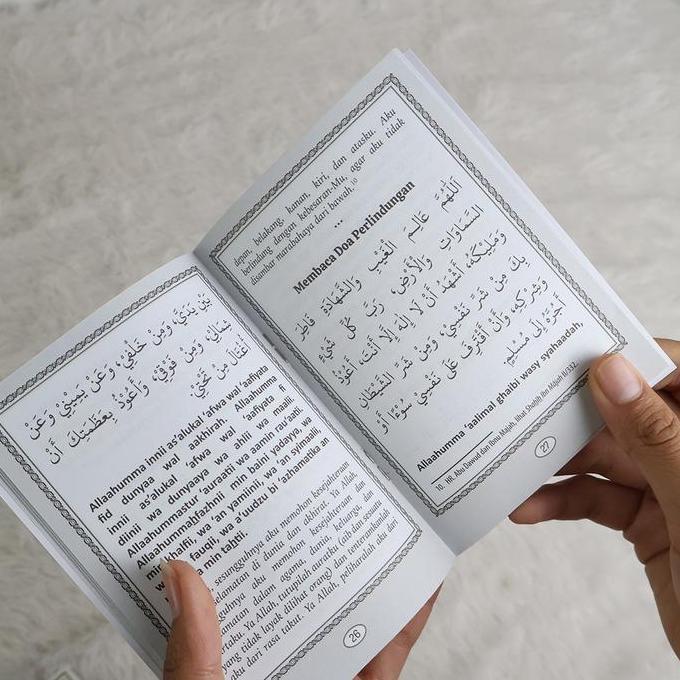 بَيْنِ يَدَيَّ، وَمِنْ خَلْفِيْ، وَعَنْ يَمِيْنِيْ وَعَنْ
شِمَالِيْ، وَمِنْ فَوْقِيْ، وَأَعُوْذُ بِعَظَمَتِكَ أَنْ
أُغْتَالَ مِنْ تَحْتِيْ.
Allaahumma innii as'alukal 'afwa wal 'aafiyata
fid dunyaa wal aakhirah. Allaahumma
innii as'alukal 'afwa wal 'aafiyata fi
diinii wa dunyaaya wa ahlii wa maalii.
Allaahummastur 'auraatii wa aamin rau'aatii.
Allaahummahfazhnii min baini yadayya, wa
min khalfii, wa 'an yamiinii, wa 'an syimaalii,
fauqii, wa a'uudzu bi 'azhamatika an
min tahtii.
sesungguhnya aku memohon kesejahteraan
selamatan di dunia dan akhirat. Ya Allah,
aku memohon kesejahteraan dan
dalam agama, dunia, keluarga, dan
Ya Allah, tutupilah auratku (aib dan sesuatu
yang tidak layak dilihat orang) dan tenteramkanlah
aku dari rasa takut. Ya Allah, peliharalah aku dari
26
depan, belakang, kanan, kiri, dan atasku. Aku
berlindung dengan kebesaran-Mu, agar aku tidak
disambar marabahaya dari bawah.¹⁰
•••
Membaca Doa Perlindungan
اَللّٰهُمَّ عَالِمَ الْغَيْبِ وَالشَّهَادَةِ فَاطِرَ
السَّمَاوَاتِ وَالْأَرْضِ، رَبَّ كُلِّ شَيْءٍ
وَمَلِيْكَهُ، أَشْهَدُ أَنْ لَا إِلٰهَ إِلَّا أَنْتَ، أَعُوْذُ
بِكَ مِنْ شَرِّ نَفْسِيْ، وَمِنْ شَرِّ الشَّيْطَانِ
وَشِرْكِهِ، وَأَنْ أَقْتَرِفَ عَلَى نَفْسِيْ سُوْءًا أَوْ
أَجُرَّهُ إِلَى مُسْلِمٍ.
Allaahumma 'aalimal ghaibi wasy syahaadah,
10. HR. Abu Dawud dan Ibnu Majah, lihat Shahih Ibn Majah II/332.
27